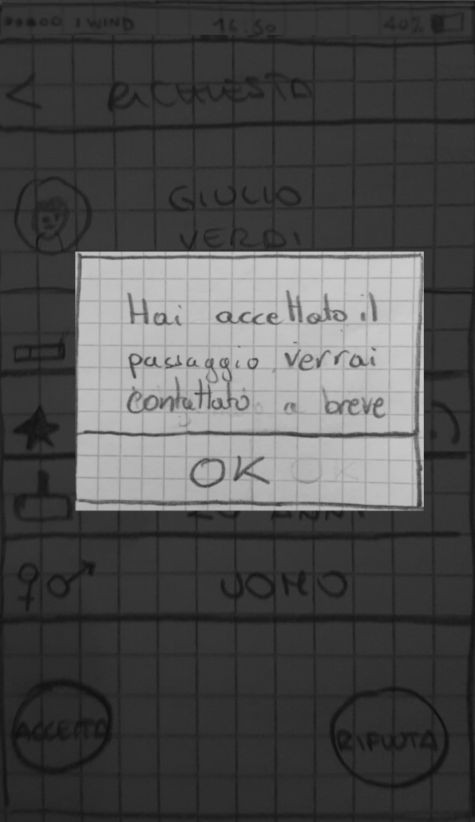 WIND 16:50 40%
< RICHIESTA
GIULIO
VERDI
Hai accettato il
passaggio verrai
contattato a breve
OK
ANNI
UOMO
ACCETTA RIFIUTA